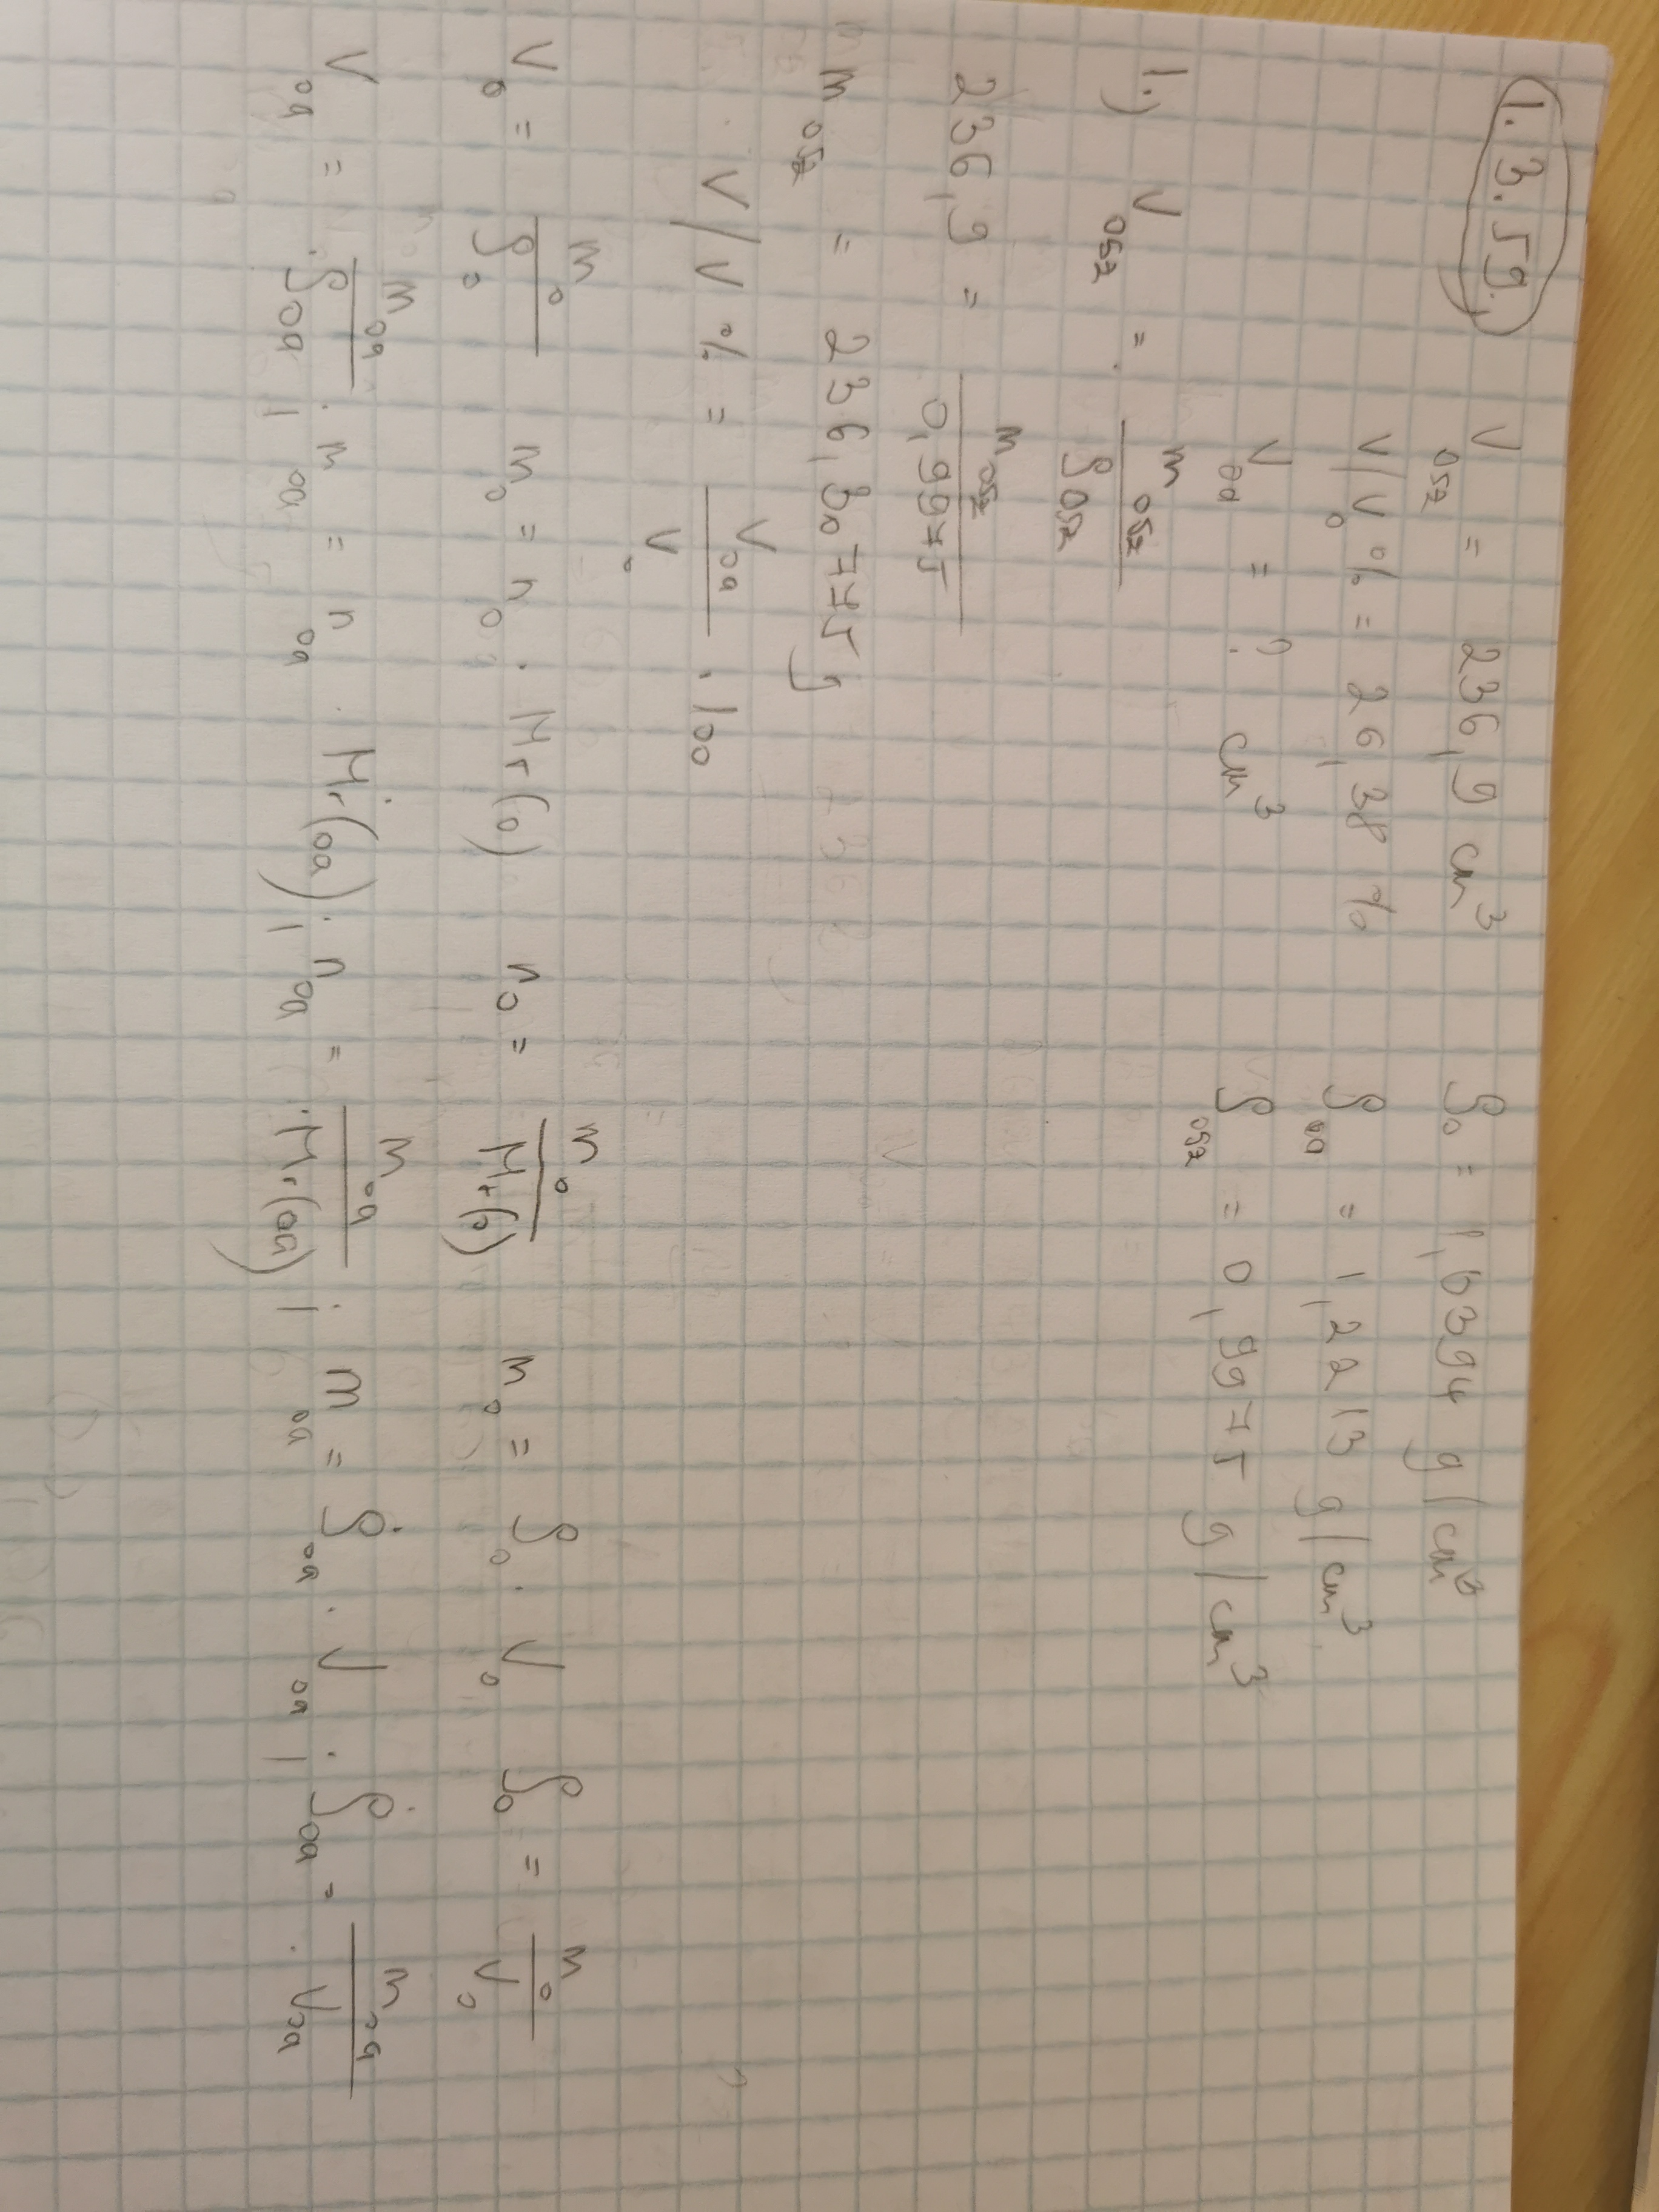 1.3.59.
V osz = 236,9 cm³ ρo = 1,6394 g/cm³
V/V o % = 26,38 % ρoa = 1,2213 g/cm³
V oa = ? cm³ ρosz = 0,9975 g/cm³
1.) V osz = m osz / ρ osz
236,9 = m osz / 0,9975
m osz = 236,30775 g
V/V % = V oa / V o · 100
V o = m o / ρ o m o = n o · Mr(o) n o = m o / Mr(o) m o = ρ o · V o ρ o = m o / V o
V oa = m oa / ρ oa ; m oa = n oa · Mr(oa) ; n oa = m oa / Mr(oa) ; m oa = ρ oa · V oa ; ρ oa = m oa / V oa